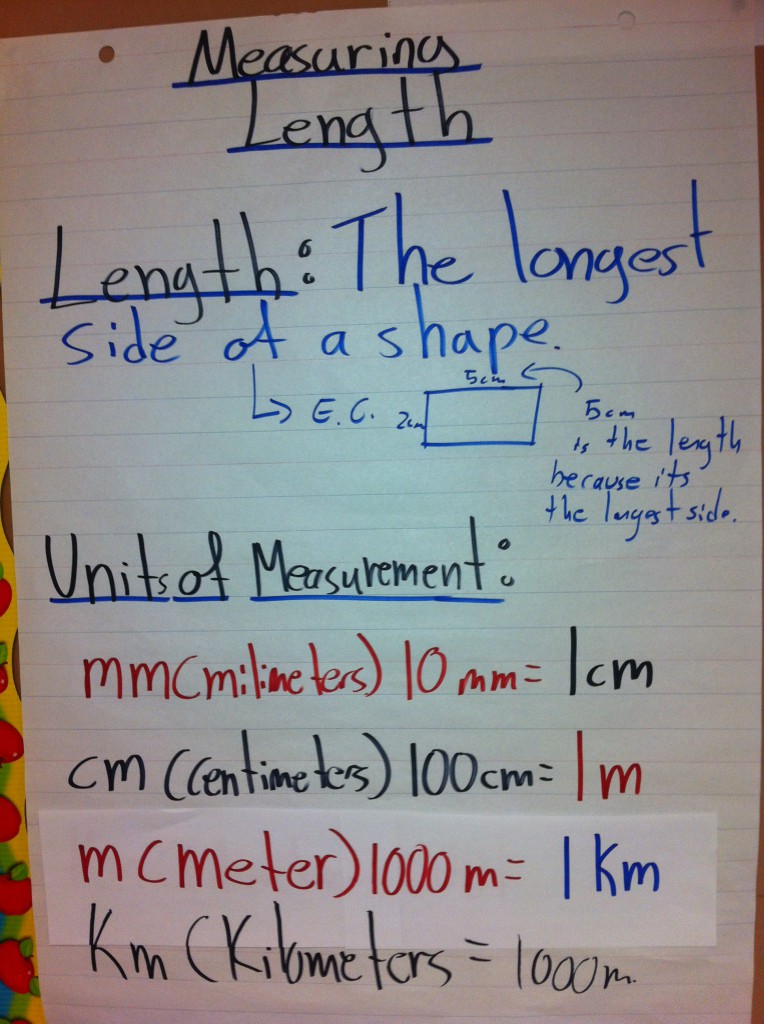 Measuring
Length
Length: The longest
side of a shape.
5cm
E.G. 2cm
5cm
is the length
because its
the longest side.
Units of Measurement:
mm (milimeters) 10 mm = 1cm
cm (centimeters) 100cm = 1m
m (meter) 1000 m = 1 Km
Km (Kilometers = 1000m.